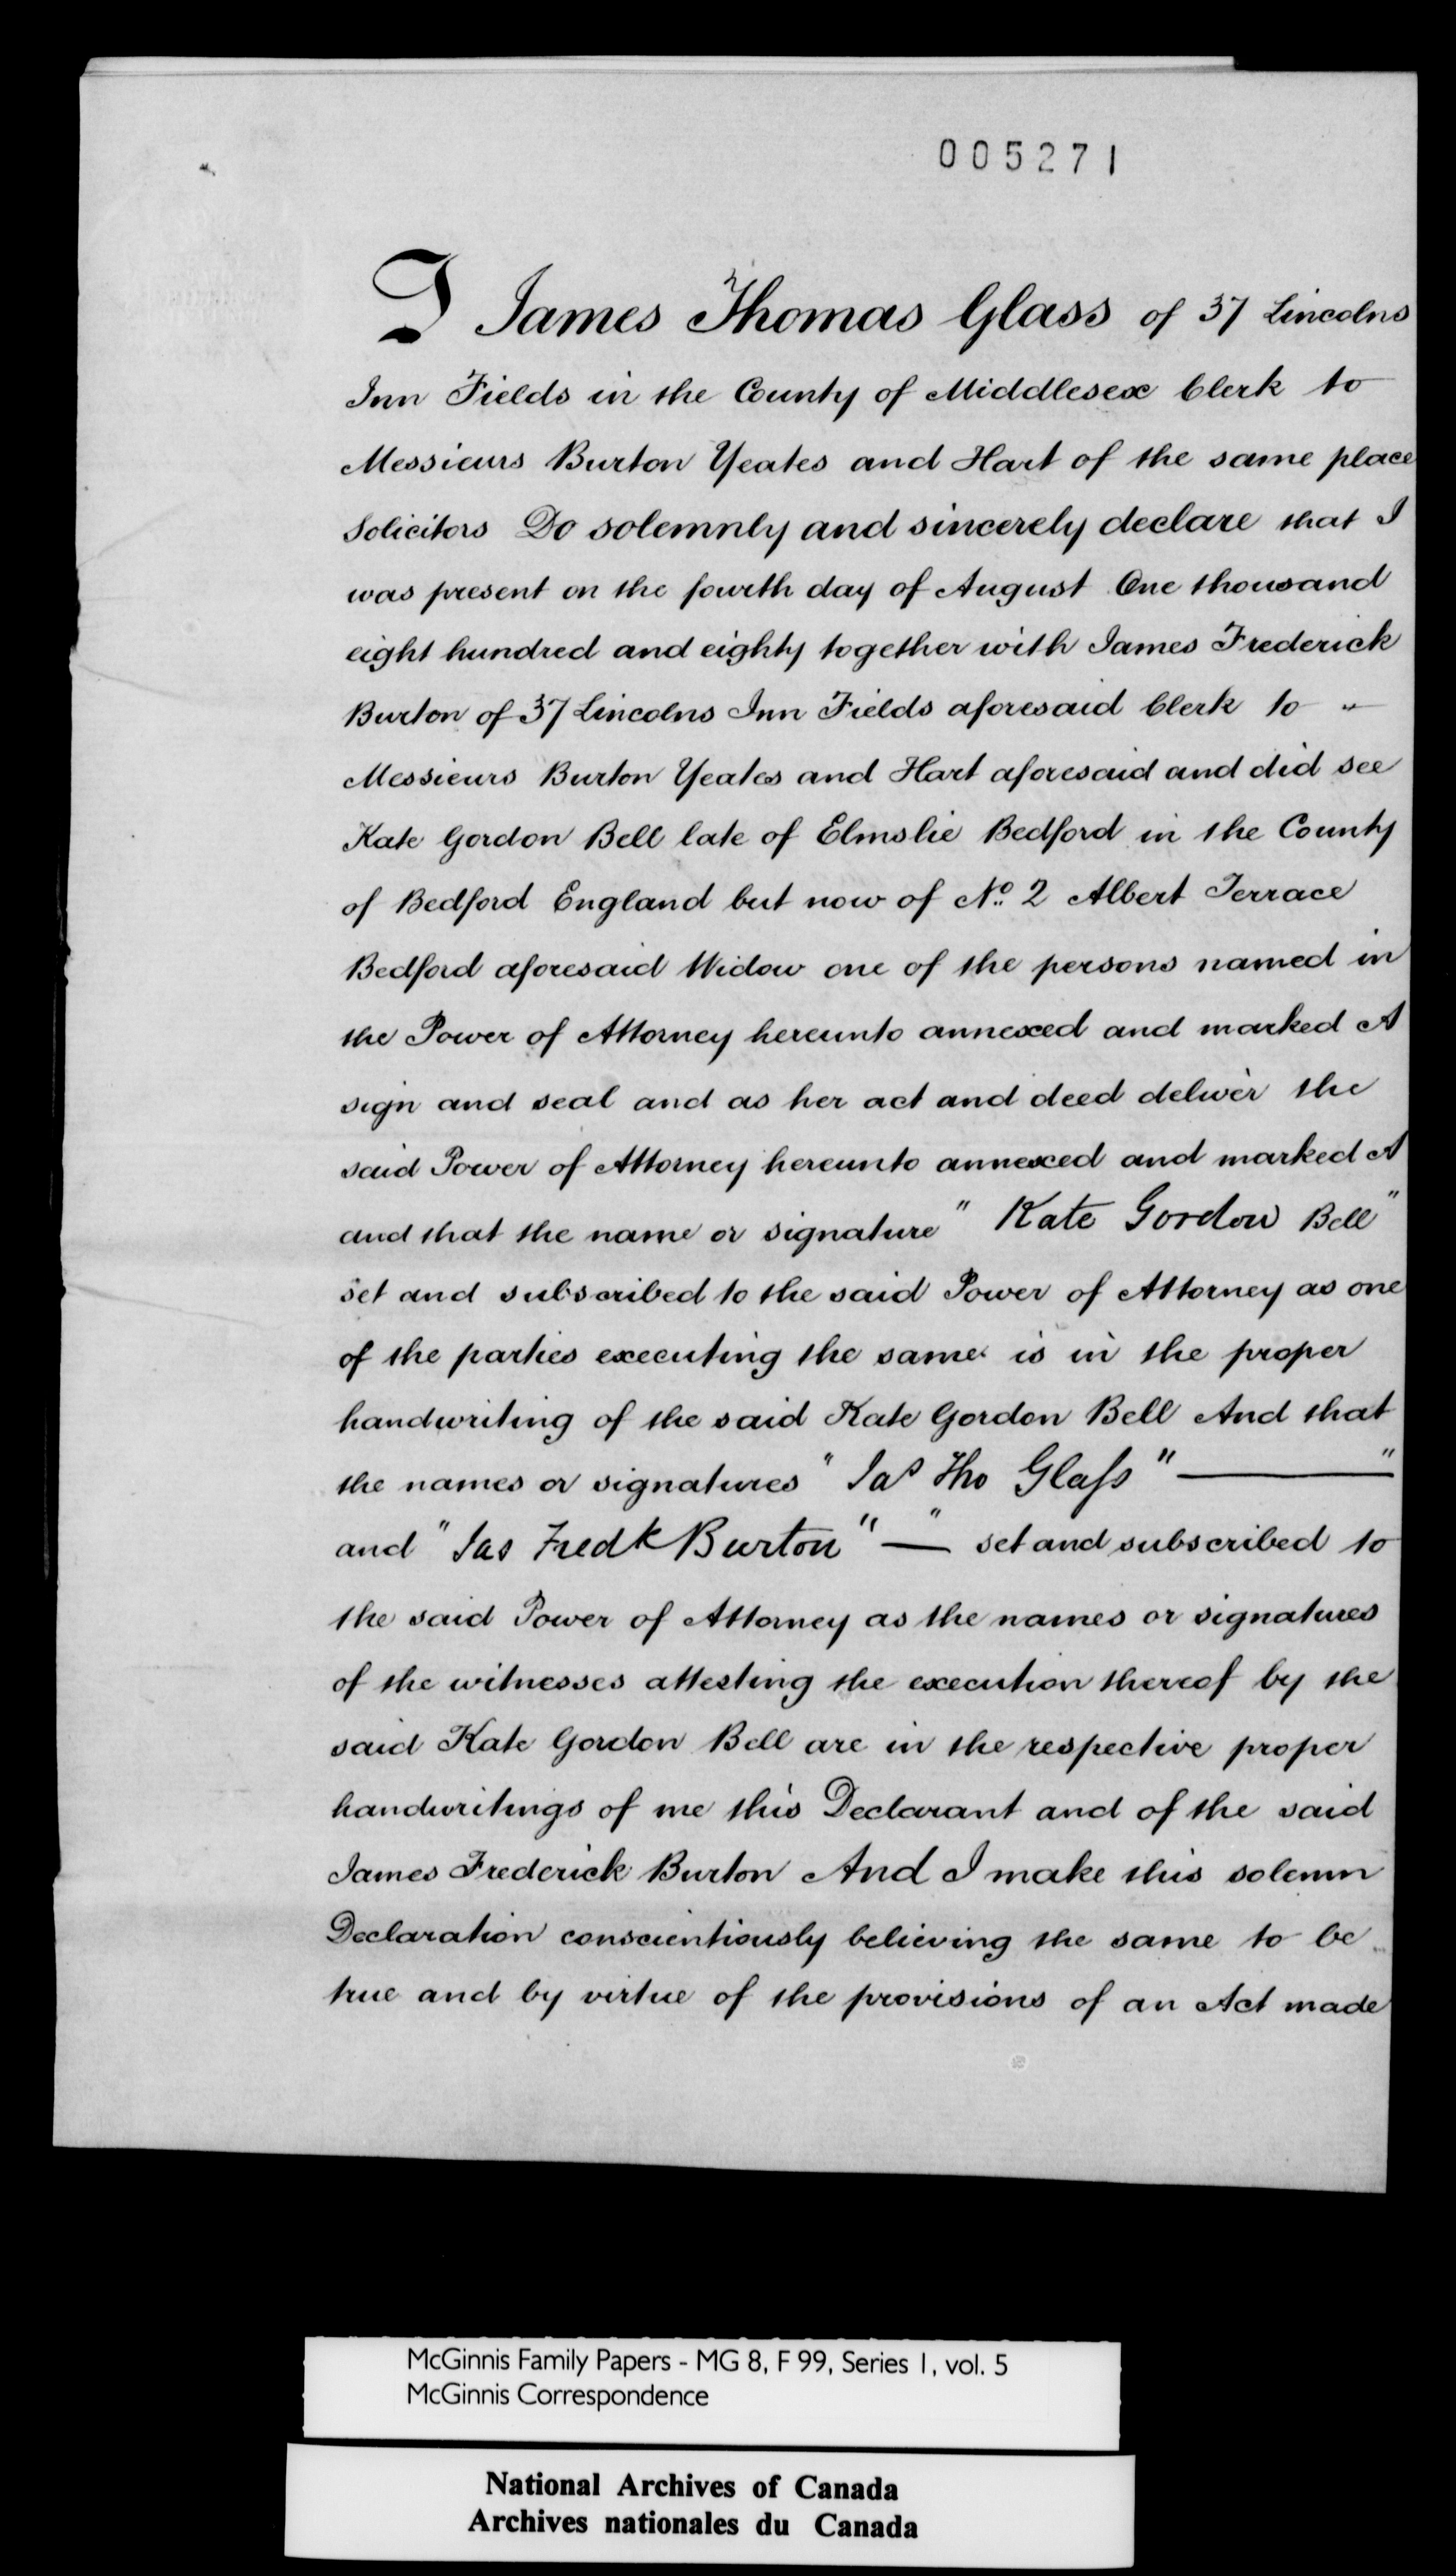 005271
I James Thomas Glass of 37 Lincolns
Inn Fields in the County of Middlesex Clerk to
Messieurs Burton Yeates and Hart of the same place
Solicitors Do solemnly and sincerely declare that I
was present on the fourth day of August One thousand
eight hundred and eighty together with James Frederick
Burton of 37 Lincolns Inn Fields aforesaid Clerk to "
Messieurs Burton Yeates and Hart aforesaid and did see
Kate Gordon Bell late of Elmslie Bedford in the County
of Bedford England but now of No. 2 Albert Terrace
Bedford aforesaid Widow one of the persons named in
the Power of Attorney hereunto annexed and marked A
sign and seal and as her act and deed deliver the
said Power of Attorney hereunto annexed and marked A
and that the name or signature "Kate Gordon Bell"
set and subscribed to the said Power of Attorney as one
of the parties executing the same is in the proper
handwriting of the said Kate Gordon Bell And that
the names or signatures "Jas Tho Glaſs" — "
and "Jas Fredk Burton" — " set and subscribed to
the said Power of Attorney as the names or signatures
of the witnesses attesting the execution thereof by the
said Kate Gordon Bell are in the respective proper
handwritings of me this Declarant and of the said
James Frederick Burton And I make this solemn
Declaration conscientiously believing the same to be
true and by virtue of the provisions of an Act made
McGinnis Family Papers - MG 8, F 99, Series 1, vol. 5
McGinnis Correspondence
National Archives of Canada
Archives nationales du Canada